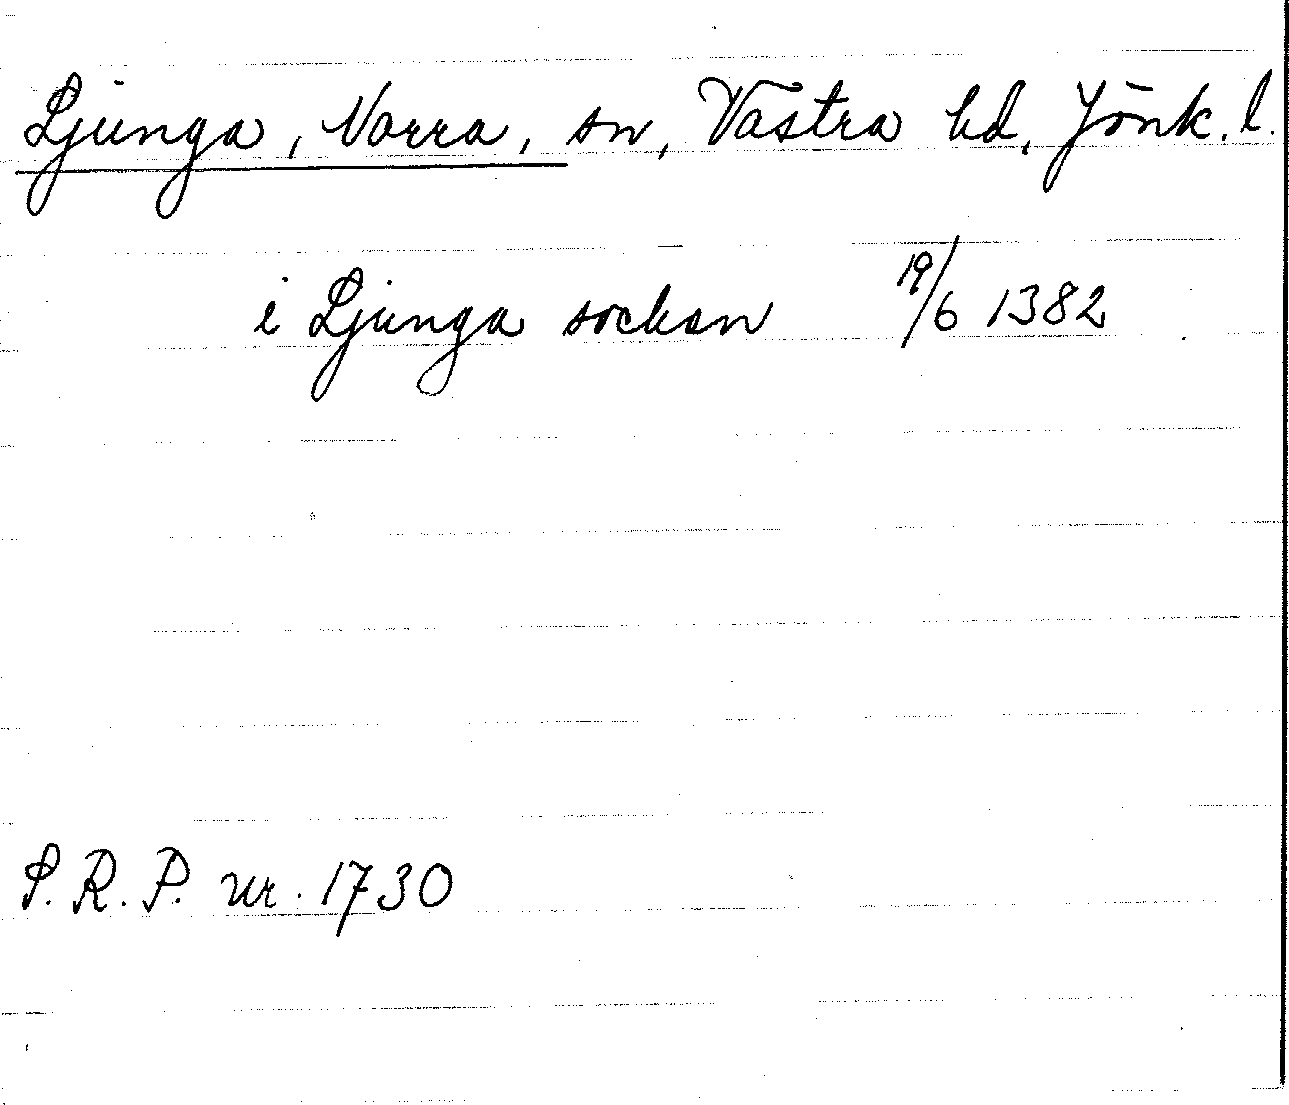 Ljunga, Norra, sn, Västra hd, Jönk. l.
i Ljunga sockan 19/6 1382
S. R. P. nr. 1730